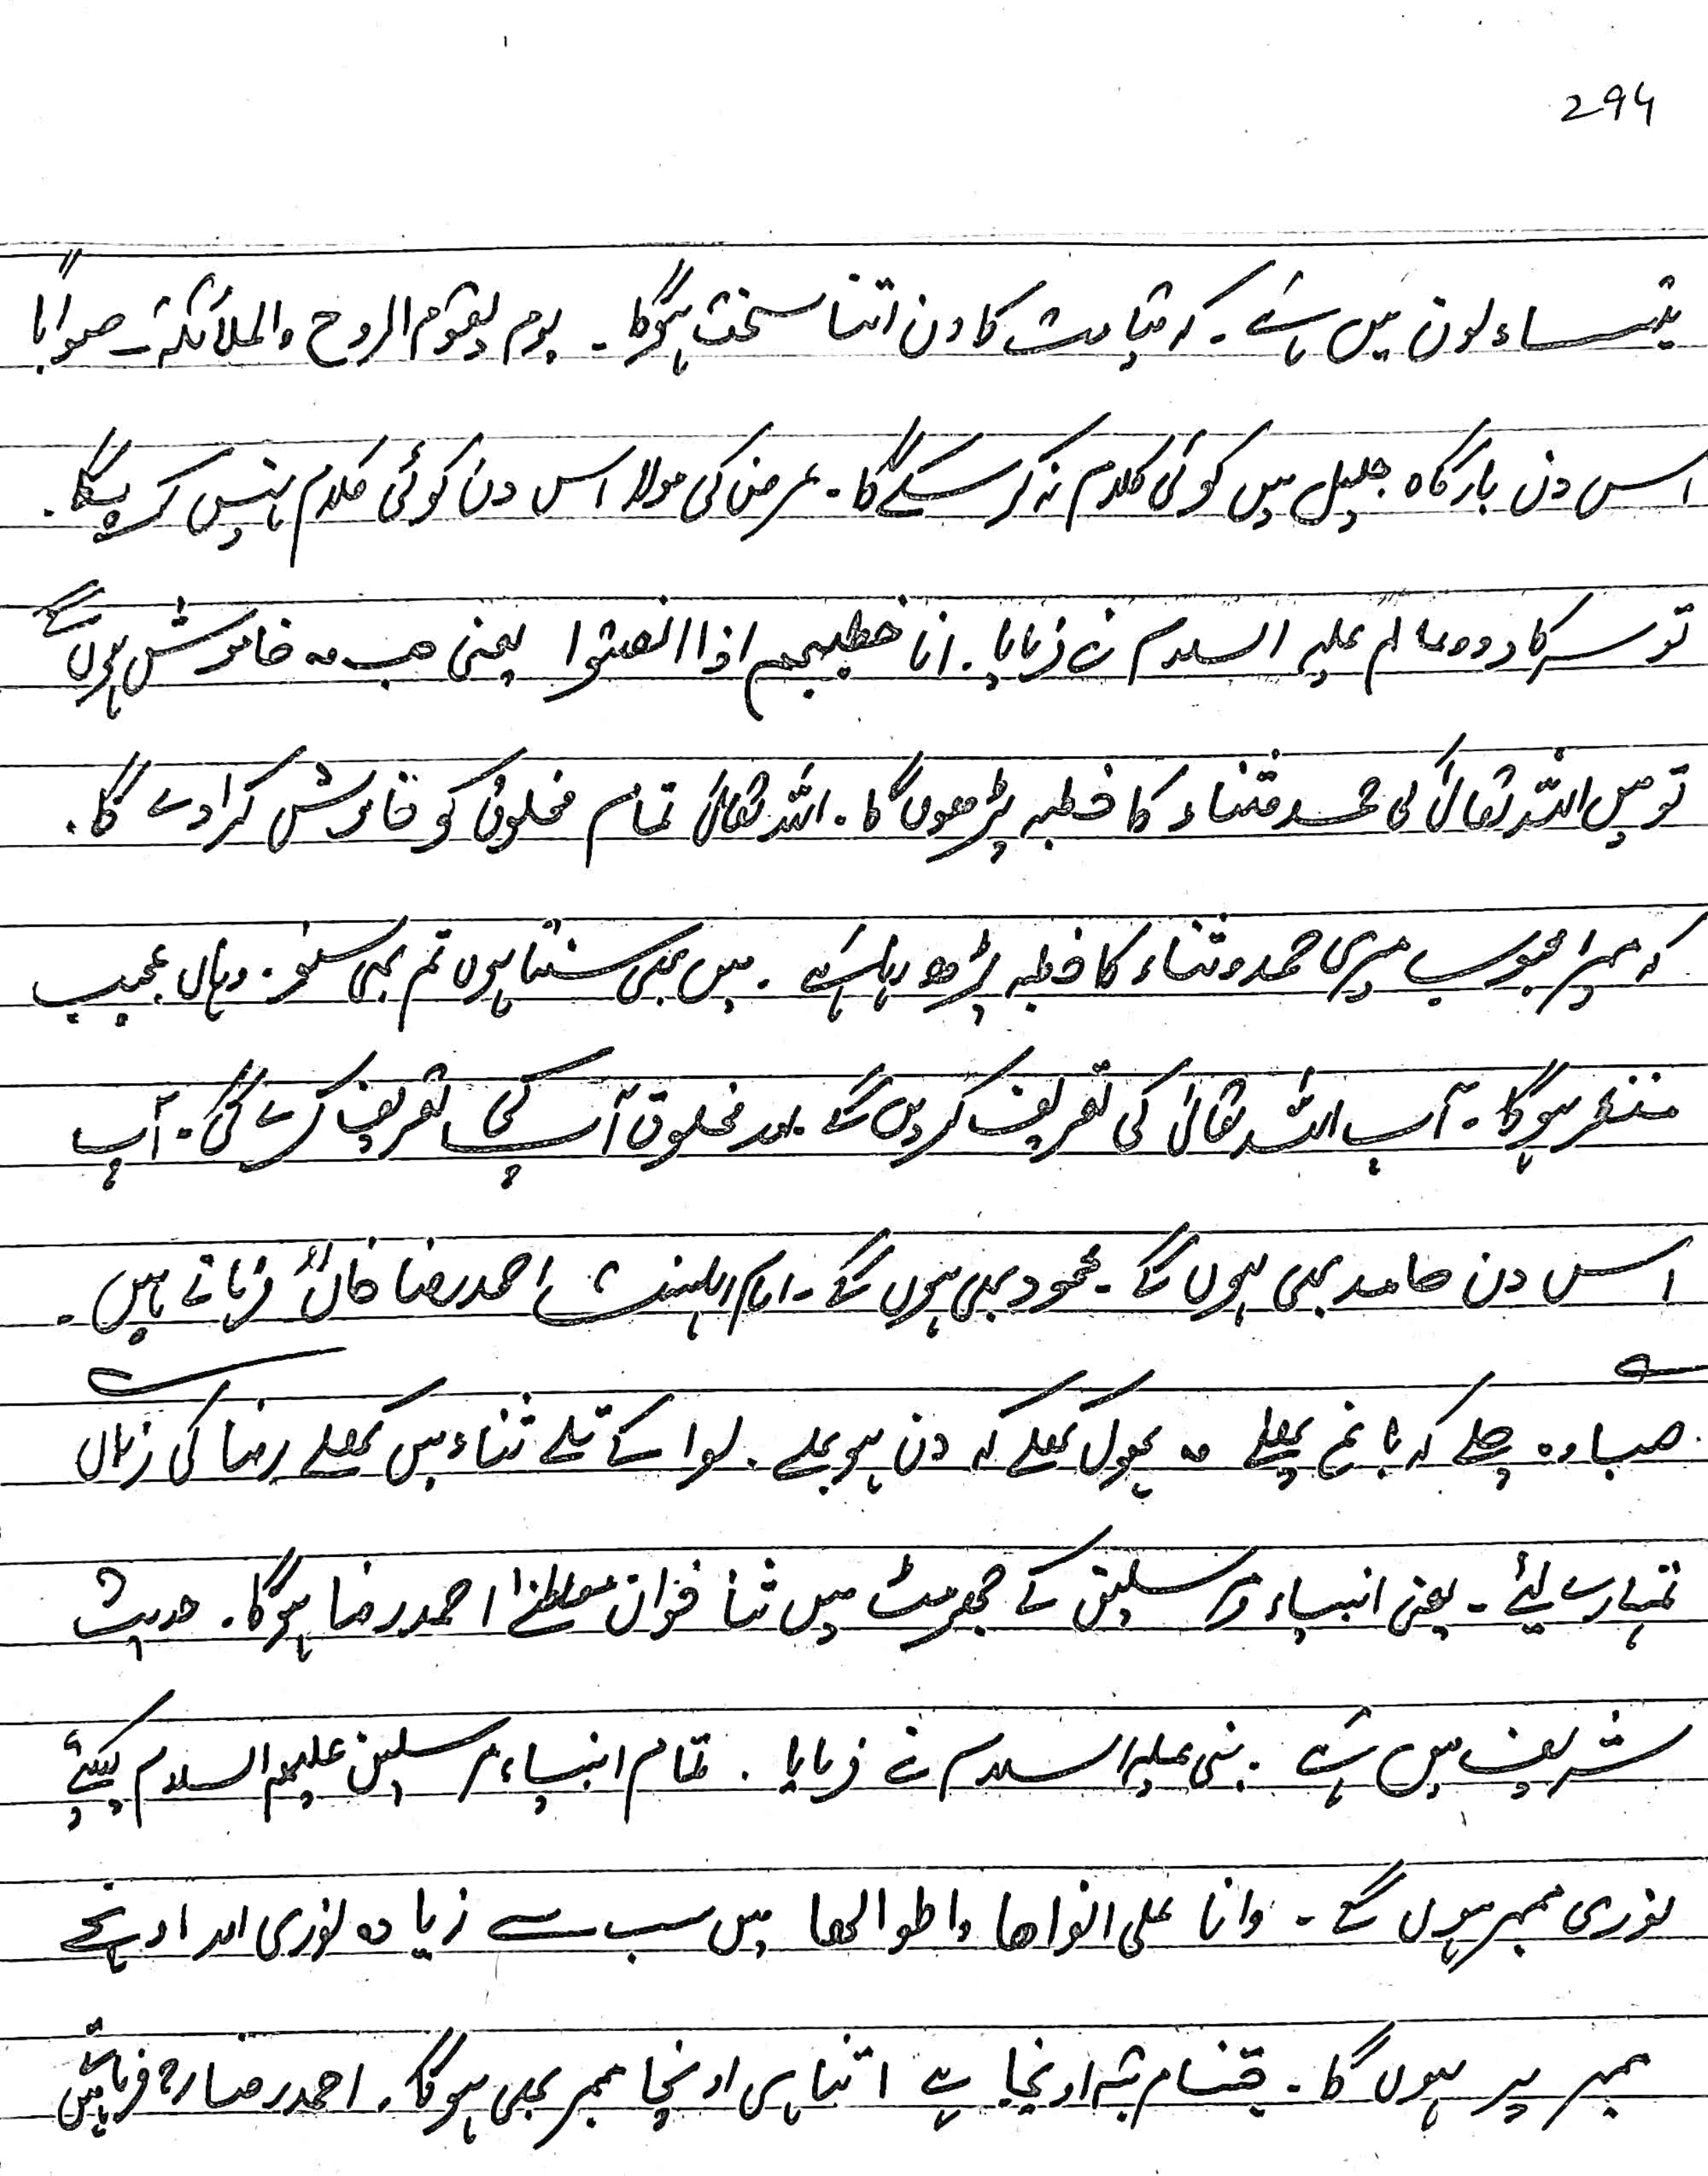 294
یتساءلون میں ہے۔ کہ قیامت کا دن اتنا سخت ہوگا۔ یوم یقوم الروح والملائکۃ۔ صوابا
اس دن بارگاہ جلیل میں کوئی کلام نہ کر سکے گا۔ عرض کی مولا اس دن کوئی کلام نہیں کریگا۔
تو سرکار دوعالم علیہ السلام نے فرمایا۔ انا خطیبھم اذا انصتوا یعنی جب وہ خاموش ہوں گے
تو میں اللہ تعالیٰ کی حمد و ثناء کا خطبہ پڑھوں گا۔ اللہ تعالیٰ تمام مخلوق کو خاموش کرا دے گا۔
کہ میرا محبوب میری حمد و ثناء کا خطبہ پڑھ رہا ہے۔ میں بھی سنتا ہوں تم بھی سنو۔ وہاں عجیب
منظر ہوگا۔ آپ اللہ تعالیٰ کی تعریف کریں گے اور مخلوق آپ کی تعریف کرے گی۔ آپ
اس دن حامد بھی ہوں گے۔ محمود بھی ہوں گے۔ امام اہلسنت احمد رضا خاںؒ فرماتے ہیں۔
صبا وہ چلے کہ باغ پھلے وہ پھول کھلے کہ دن ہو بھلے۔ لوا کے تلے ثناء میں کھلے رضا کی زباں
تمہارے لئے۔ یعنی انبیاء و مرسلین کے جھرمٹ میں ثنا خوان مصطفےٰ احمد رضا ہوگا۔ حدیث
شریف میں ہے۔ نبی علیہ السلام نے فرمایا۔ تمام انبیاء مرسلین علیہم السلام کیلئے
نوری ممبر ہوں گے۔ وانا علی انوارھا واطوالھا میں سب سے زیادہ نوری اور اونچے
ممبر پر ہوں گا۔ جتنا مرتبہ اونچا ہے اتنا ہی اونچا ممبر بھی ہوگا۔ احمد رضاؒ فرماتے ہیں